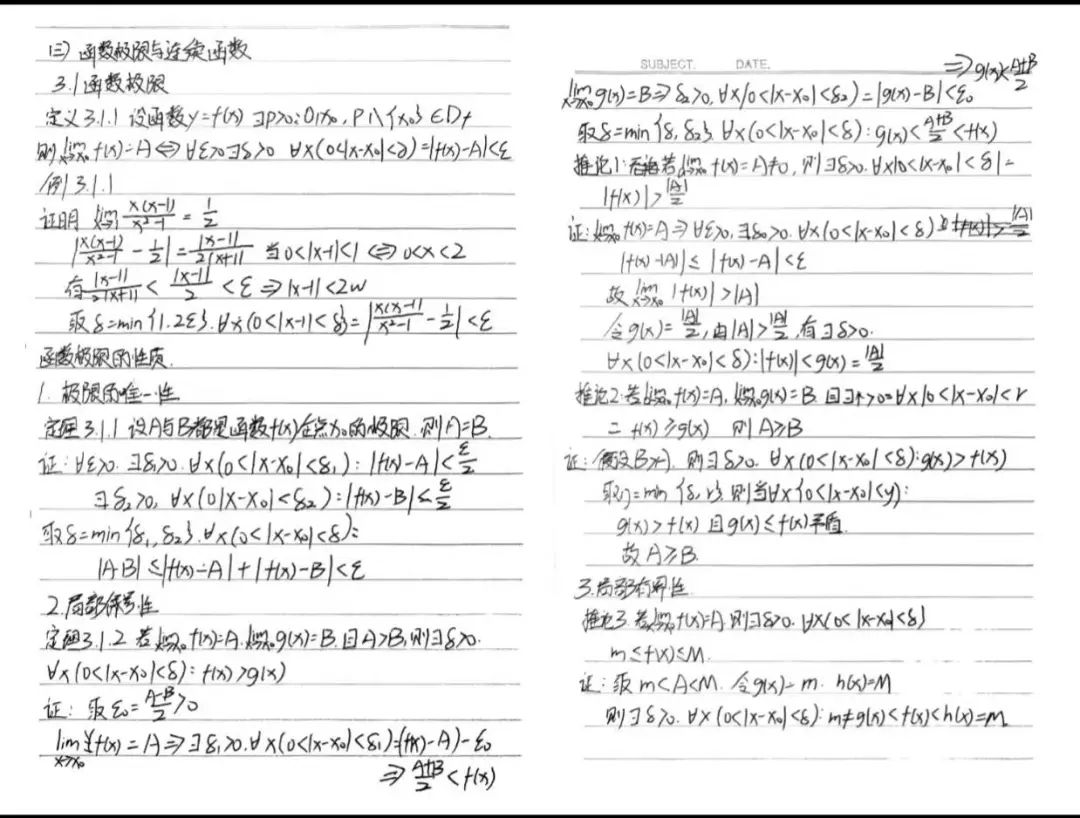 (三) 函数极限与连续函数
3.1 函数极限
定义3.1.1 设函数y=f(x) ∃ρ>0: O(x₀, ρ)\{x₀}∈Df
则 lim x→x₀ f(x)=A ⇔ ∀ε>0 ∃δ>0 ∀x(0<|x-x₀|<δ)=|f(x)-A|<ε
例3.1.1
证明 lim x→1 x(x-1)/x²-1 = 1/2
|x(x-1)/x²-1 - 1/2| = |x-1|/2|x+1| 当0<|x-1|<1 ⇔ 0<x<2
有 |x-1|/2|x+1| < |x-1|/2 < ε ⇒ |x-1|<2w
取δ=min{1.2ε}.∀x(0<|x-1|<δ)=|x(x-1)/x²-1 - 1/2|<ε
函数极限的性质.
1. 极限的唯一性
定理3.1.1 设A与B都是函数f(x)在点x₀的极限.则A=B.
证:∀ε>0. ∃δ₁>0. ∀x(0<|x-x₀|<δ₁): |f(x)-A|<ε/2
∃δ₂>0, ∀x(0|x-x₀|<δ₂): |f(x)-B|<ε/2
取δ=min{δ₁, δ₂}.∀x(0<|x-x₀|<δ):
|A-B|≤|f(x)-A|+|f(x)-B|<ε
2.局部保号性
定理3.1.2 若lim x→x₀ f(x)=A. lim x→x₀ g(x)=B. 且A>B,则∃δ>0.
∀x(0<|x-x₀|<δ): f(x)>g(x)
证: 取ε₀=A-B/2>0
lim x→x₀ f(x)=A ⇒ ∃δ₁>0.∀x(0<|x-x₀|<δ₁):(f(x)-A)-ε₀
⇒ A+B/2 < f(x)
SUBJECT. DATE.
⇒ g(x)<A+B/2
lim x→x₀ g(x)=B ⇒ δ₂>0. ∀x(0<|x-x₀|<δ₂)=|g(x)-B|<ε₀
取δ=min{δ₁, δ₂}. ∀x(0<|x-x₀|<δ): g(x)<A+B/2<f(x)
推论1: 若lim x→x₀ f(x)=A≠0, 则∃δ>0. ∀x(0<|x-x₀|<δ)=
|f(x)|>|A|/2
证: lim x→x₀ f(x)=A ⇒ ∀ε>0, ∃δ₀>0. ∀x(0<|x-x₀|<δ) |f(x)|>|A|/2
|f(x)-|A||≤|f(x)-A|<ε
故 lim x→x₀ |f(x)|>|A|
令g(x)=|A|/2, 由|A|>|A|/2, 有∃δ>0.
∀x(0<|x-x₀|<δ):|f(x)|<g(x)=|A|/2
推论2:若lim x→x₀ f(x)=A, lim x→x₀ g(x)=B. 且∃r>0=∀x(0<|x-x₀|<r
= f(x)≥g(x) 则A≥B
证: 假设B>A, 则∃δ>0. ∀x(0<|x-x₀|<δ):g(x)>f(x)
取η=min{δ, r}.则当∀x{0<|x-x₀|<y):
g(x)>f(x) 且g(x)≤f(x)矛盾.
故A≥B.
3.局部有界性
推论3 若lim x→x₀ f(x)=A 则∃δ>0. ∀x(0<|x-x₀|<δ)
m≤f(x)≤M.
证: 取m<A<M. 令g(x)=m. h(x)=M
则∃δ>0. ∀x(0<|x-x₀|<δ): m≠g(x)<f(x)<h(x)=M